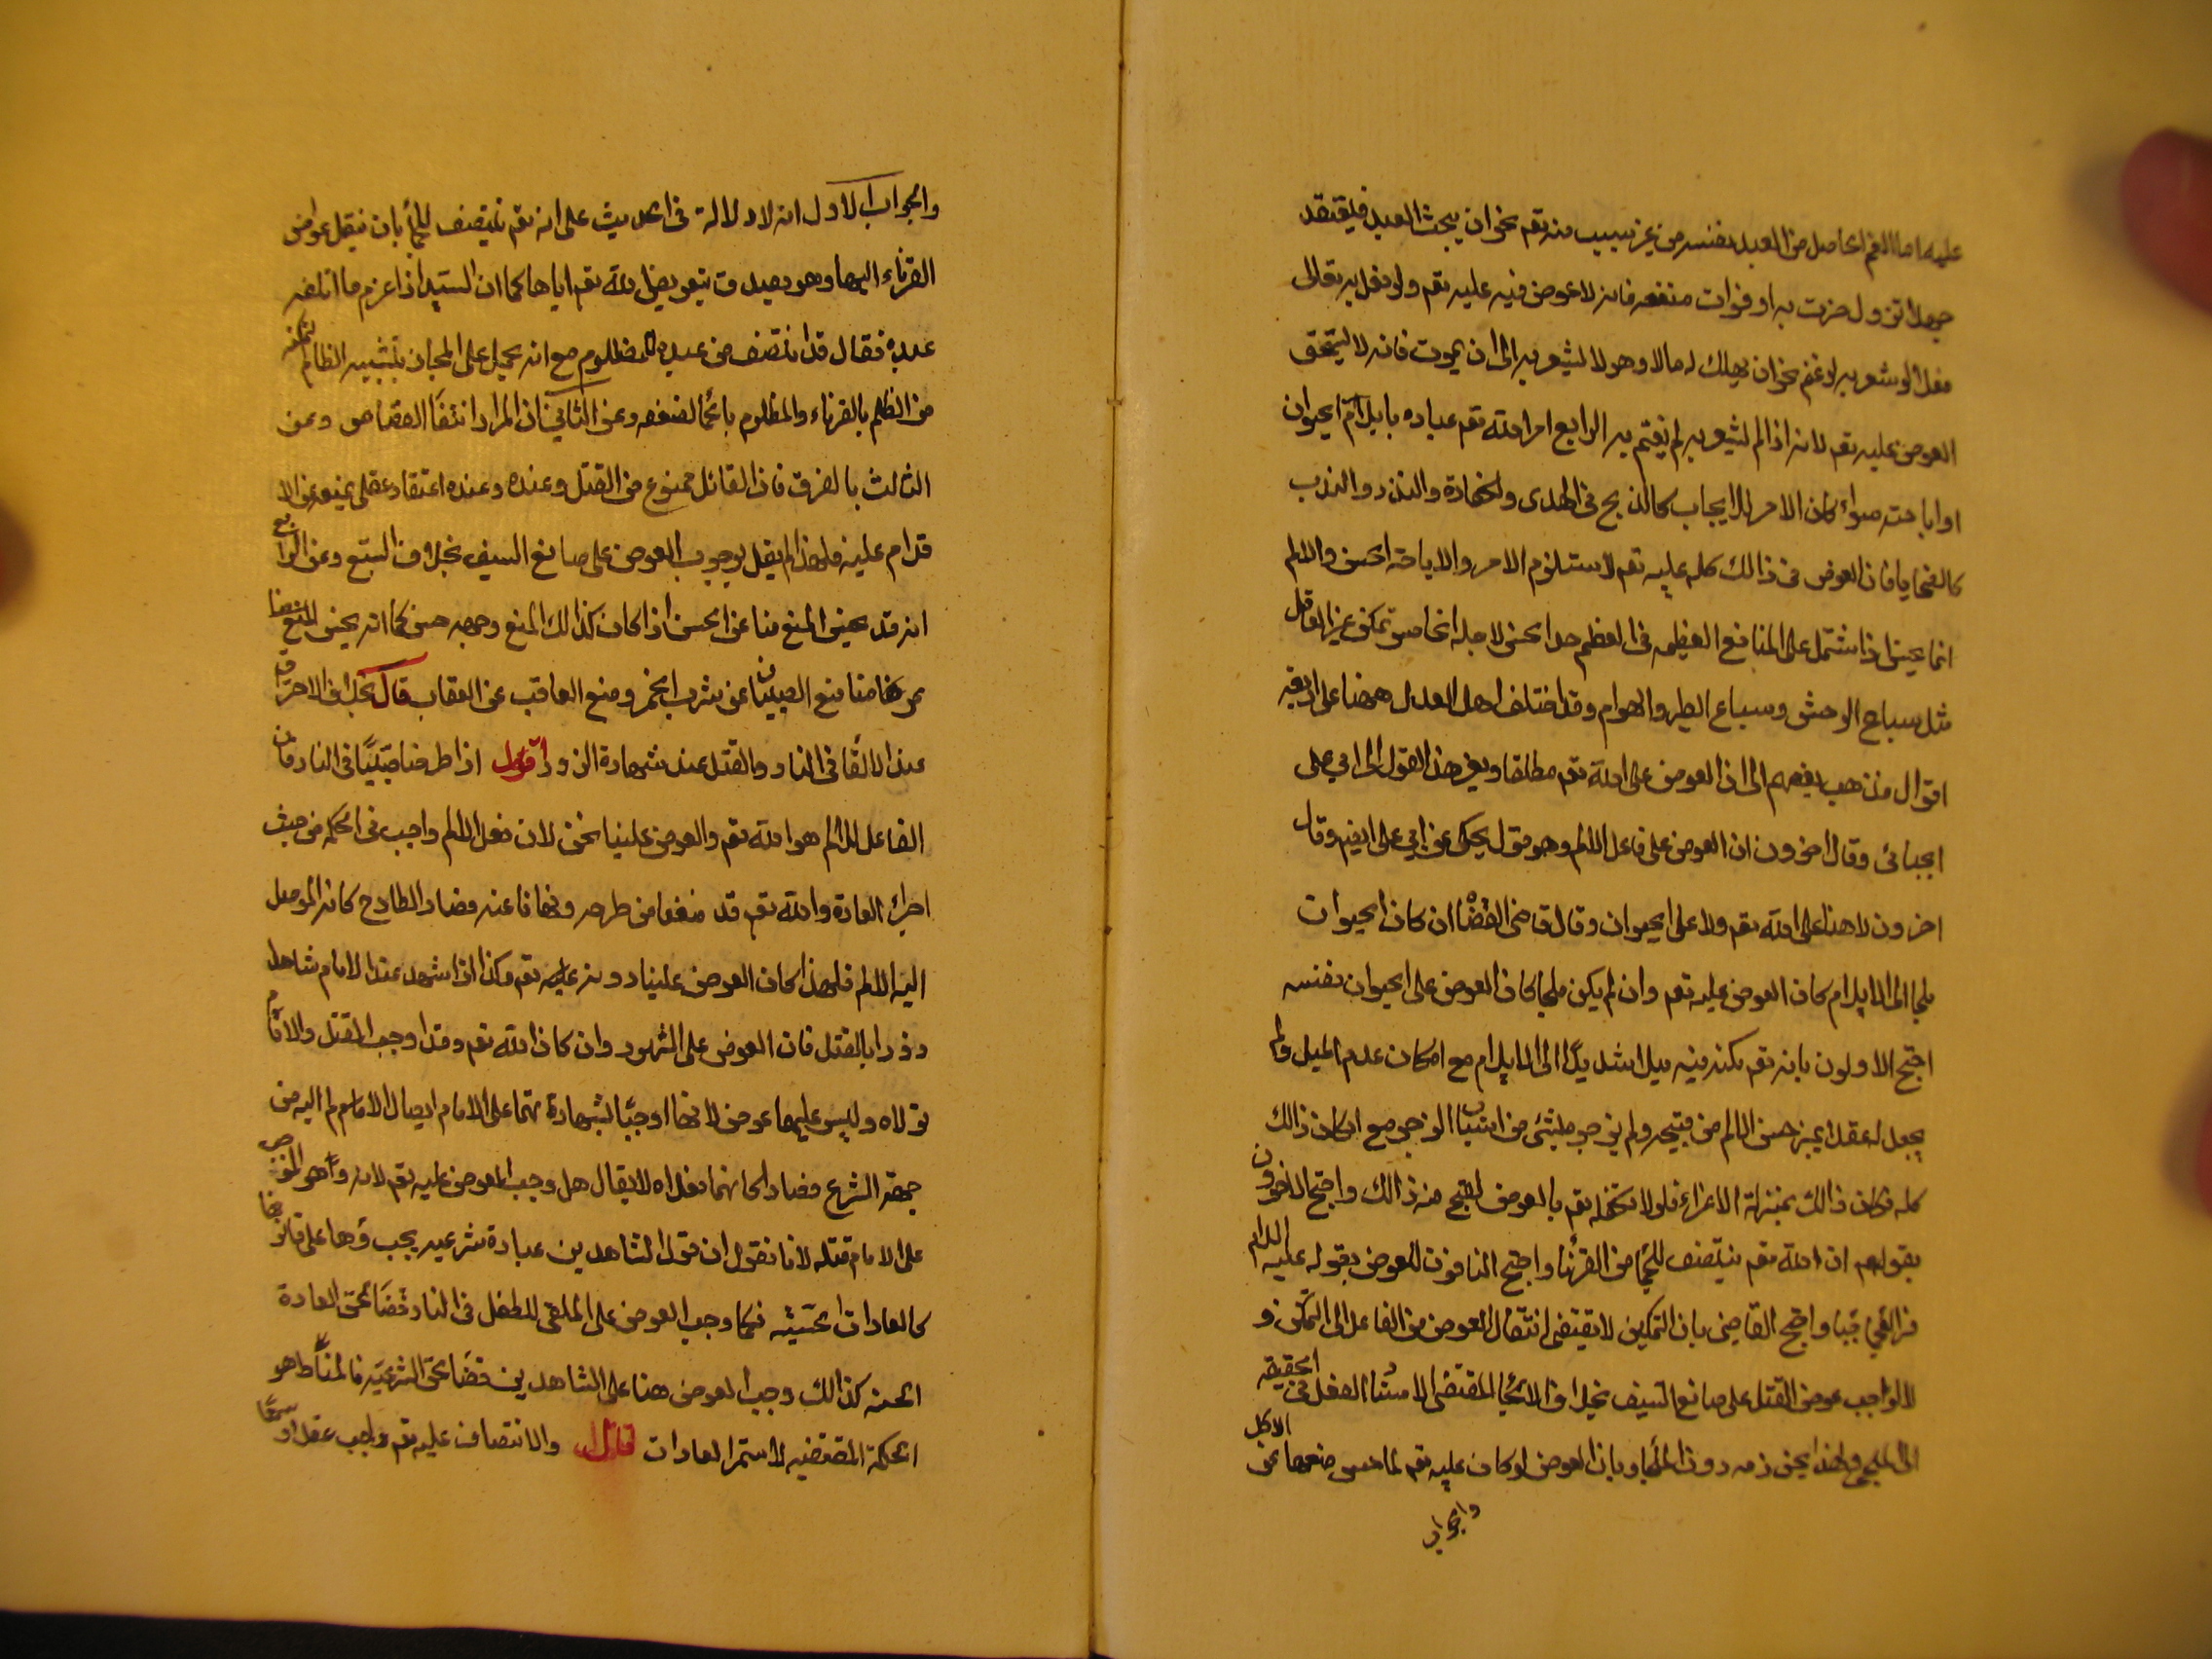 عليه اما الغم الحاصل من العبد نفسه من غير سبب منه تعم نحو ان يبحث العبد فيعتقد
جهلا نزول ضرر به او فوات منفعه فانه لا عوض فيه عليه تعم ولو فعل به تعالى
فعلا لو شعر به لاغتم نحو ان يهلك له مالا وهو لا يشعر به الى ان يموت فانه لا يستحق
العوض عليه تعم لانه اذا لم يشعر به لم يغتم به الرابع امر الله تعم عباده بايلام الحيوان
او اباحته سواء كان الامر للايجاب كالذبح في الهدى والكفارة والنذر والندب
كالضحايا فان العوض في ذالك كله عليه تعم لاستلزام الامر والاباحة الحسن والالم
انما يحسن اذا اشتمل على المنافع العظيمه في العظم حدا يحسن لاجله الخامس تمكين غير العاقل
مثل سباع الوحش وسباع الطير والهوام وقد اختلف اهل العدل ههنا على اربعه
اقوال فذهب بعضهم الى ان العوض على الله تعم مطلقا ويعزى هذا القول الى ابي على
الجبائى وقال اخرون ان العوض على فاعل الالم وهو قول يحكى عن ابي على ايضم وقال
اخرون لا هنا على الله تعم ولا على الحيوان وقال قاضى القضاة ان كان الحيوان
ملجا الى الايلام كان العوض عليه تعم وان لم يكن ملجا كان العوض على الحيوان نفسه
احتج الاولون بانه تعم مكنه فيه ميلا شديدا الى الايلام مع امكان عدم الميل ولم
يجعل له عقلا يميز حسن الالم من قبيحه ولم يزجره بشئ من اسباب الزجر مع امكان ذالك
كله فكان ذالك بمنزلة الاغراء فلولا تكفله تعم بالعوض لقبح منه ذالك واحتج الاخرون
بقولهم ان الله تعم ينتصف للجماء من القرناء واحتج النافون للعوض بقوله عليه السلام
جرح العجماء جبار واحتج القاضى بان التمكين لا يقتضى انتقال العوض من الفاعل الى الممكن و
الا لوجب عوض القتل على صانع السيف بخلاف الالجاء المقتضى لاسناد الفعل في الحقيقه
الى الملجئ ولهذا يحسن ذمه دون الملجأ وبان العوض لو كان عليه تعم لما حسن منعها عن الاكل
والجواب
والجواب الاول انه لا دلالة في الحديث على انه تعم ينتصف للجماء بان ينقل عواض
القرناء اليها وهو يصدق بتعويض الله تعم اياها كما ان السيد اذا غرم ما اتلفه
عبده فقال قد انتصف من عبده للمظلوم مع انه يحمل على المجاز بتشبيه الظالم لتمكنه
من الظلم بالقرناء والمظلوم بالجماء لضعفه وعن الثاني ان المراد انتفاء القصاص وعن
الثالث بالفرق فان القاتل ممنوع من القتل وعنده وعنده اعتقاد عقلى يمنعه عن الا
قدام عليه فلهذا لم يقل بوجوب العوض على صانع السيف بخلاف السبع وعن الرابع
انه قد يحسن المنع منا عن الحسن اذا كان كذالك المنع وجه حسن كما انه يحسن المنع منا
صرفنا منا منع الصبيان عن شرب الخمر ومنع العاقب عن العقاب قال بخلاف الاحراق
عند الالقاء في النار والقتل عند شهادة الزور اقول اذا طرحنا صبيا في النار فان
الفاعل للالم هو الله تعم والعوض علينا نحن لان فعل الالم واجب في الحكمة من حيث
اجراء العادة والله تعم قد منعنا من طرحه ونهانا عنه فصار الطارح كانه الموصل
اليه الالم فلهذا كان العوض علينا دونه عليه تعم وكذا اذا شهد عند الامام شاهدا
زور بالقتل فان العوض على الشهود وان كان الله تعم وقد اوجب القتل والامام
تولاه وليس عليهما عوض لانهما اوجبا بشهادتهما على الامام ايصال الالم اليه من
جهة الشرع فصار كانهما فعلاه لا يقال هل وجب العوض عليه تعم لانه وهو الموجب
على الامام قتله لانا نقول ان قول الشاهدين عبادة شرعيه يجب قضاها على قانونها
كالعادات الحسيه فكما وجب العوض على الملقى للطفل في النار قضاء لحق العادة
الحسيه كذالك وجب العوض هنا على الشاهدين قضاء لحق الشرعيه فالمناط هو
الحكمة المقتضيه لاستمرار العادات قال والانتصاف عليه تعم واجب عقلا وسمعا